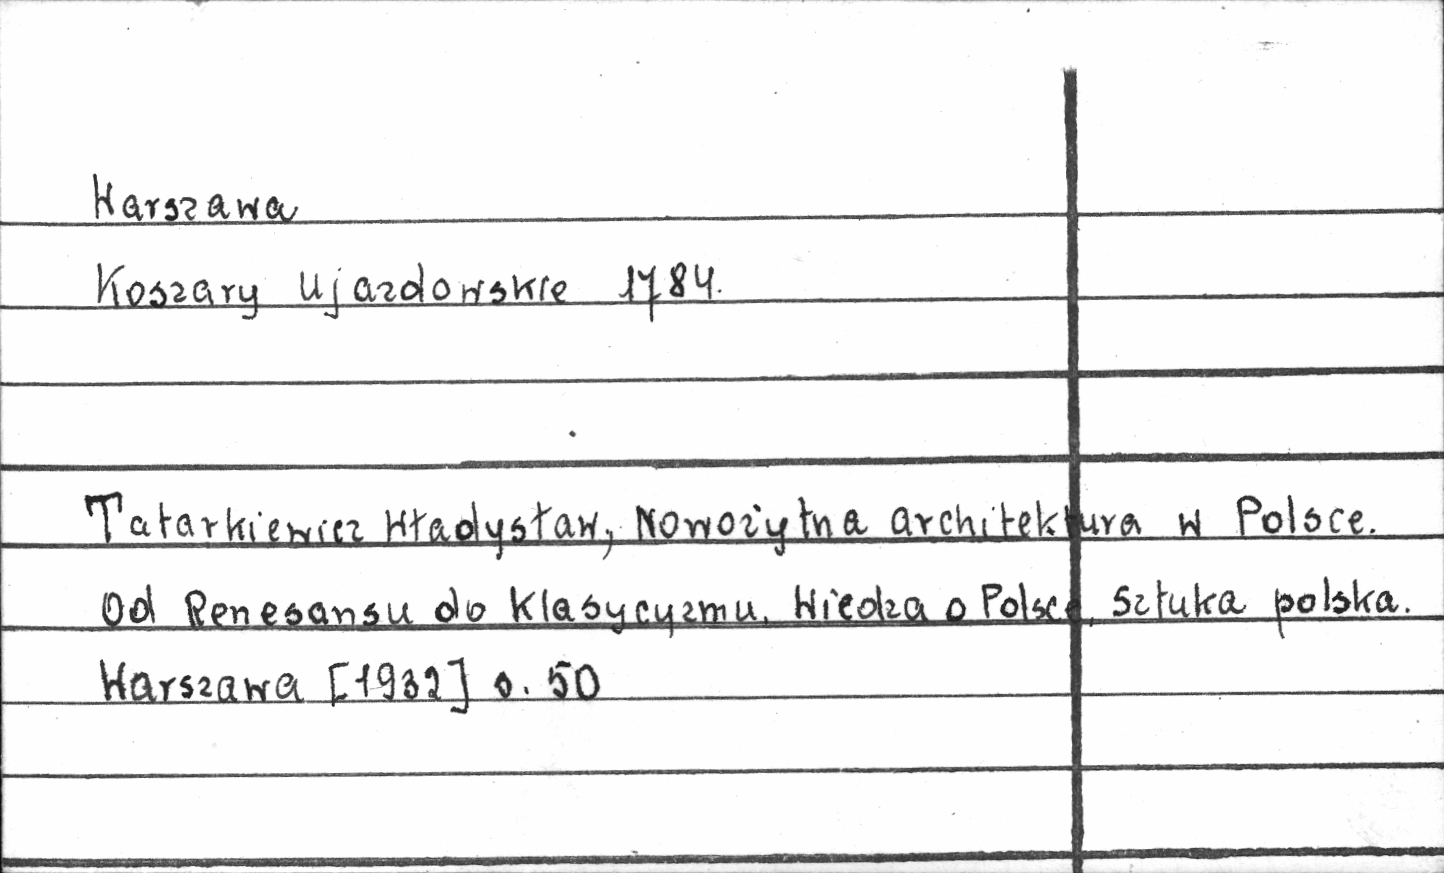 Warszawa
Koszary Ujazdowskie 1784.
Tatarkiewicz Władysław, Nowożytna architektura w Polsce.
Od Renesansu do Klasycyzmu. Wiedza o Polsce, Sztuka polska.
Warszawa [1932] s. 50